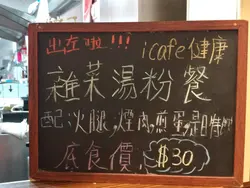 出左啦!!! icafe健康
雜菜湯粉餐
配:火腿,煙肉,煎蛋,是日特飲
底食價,$30